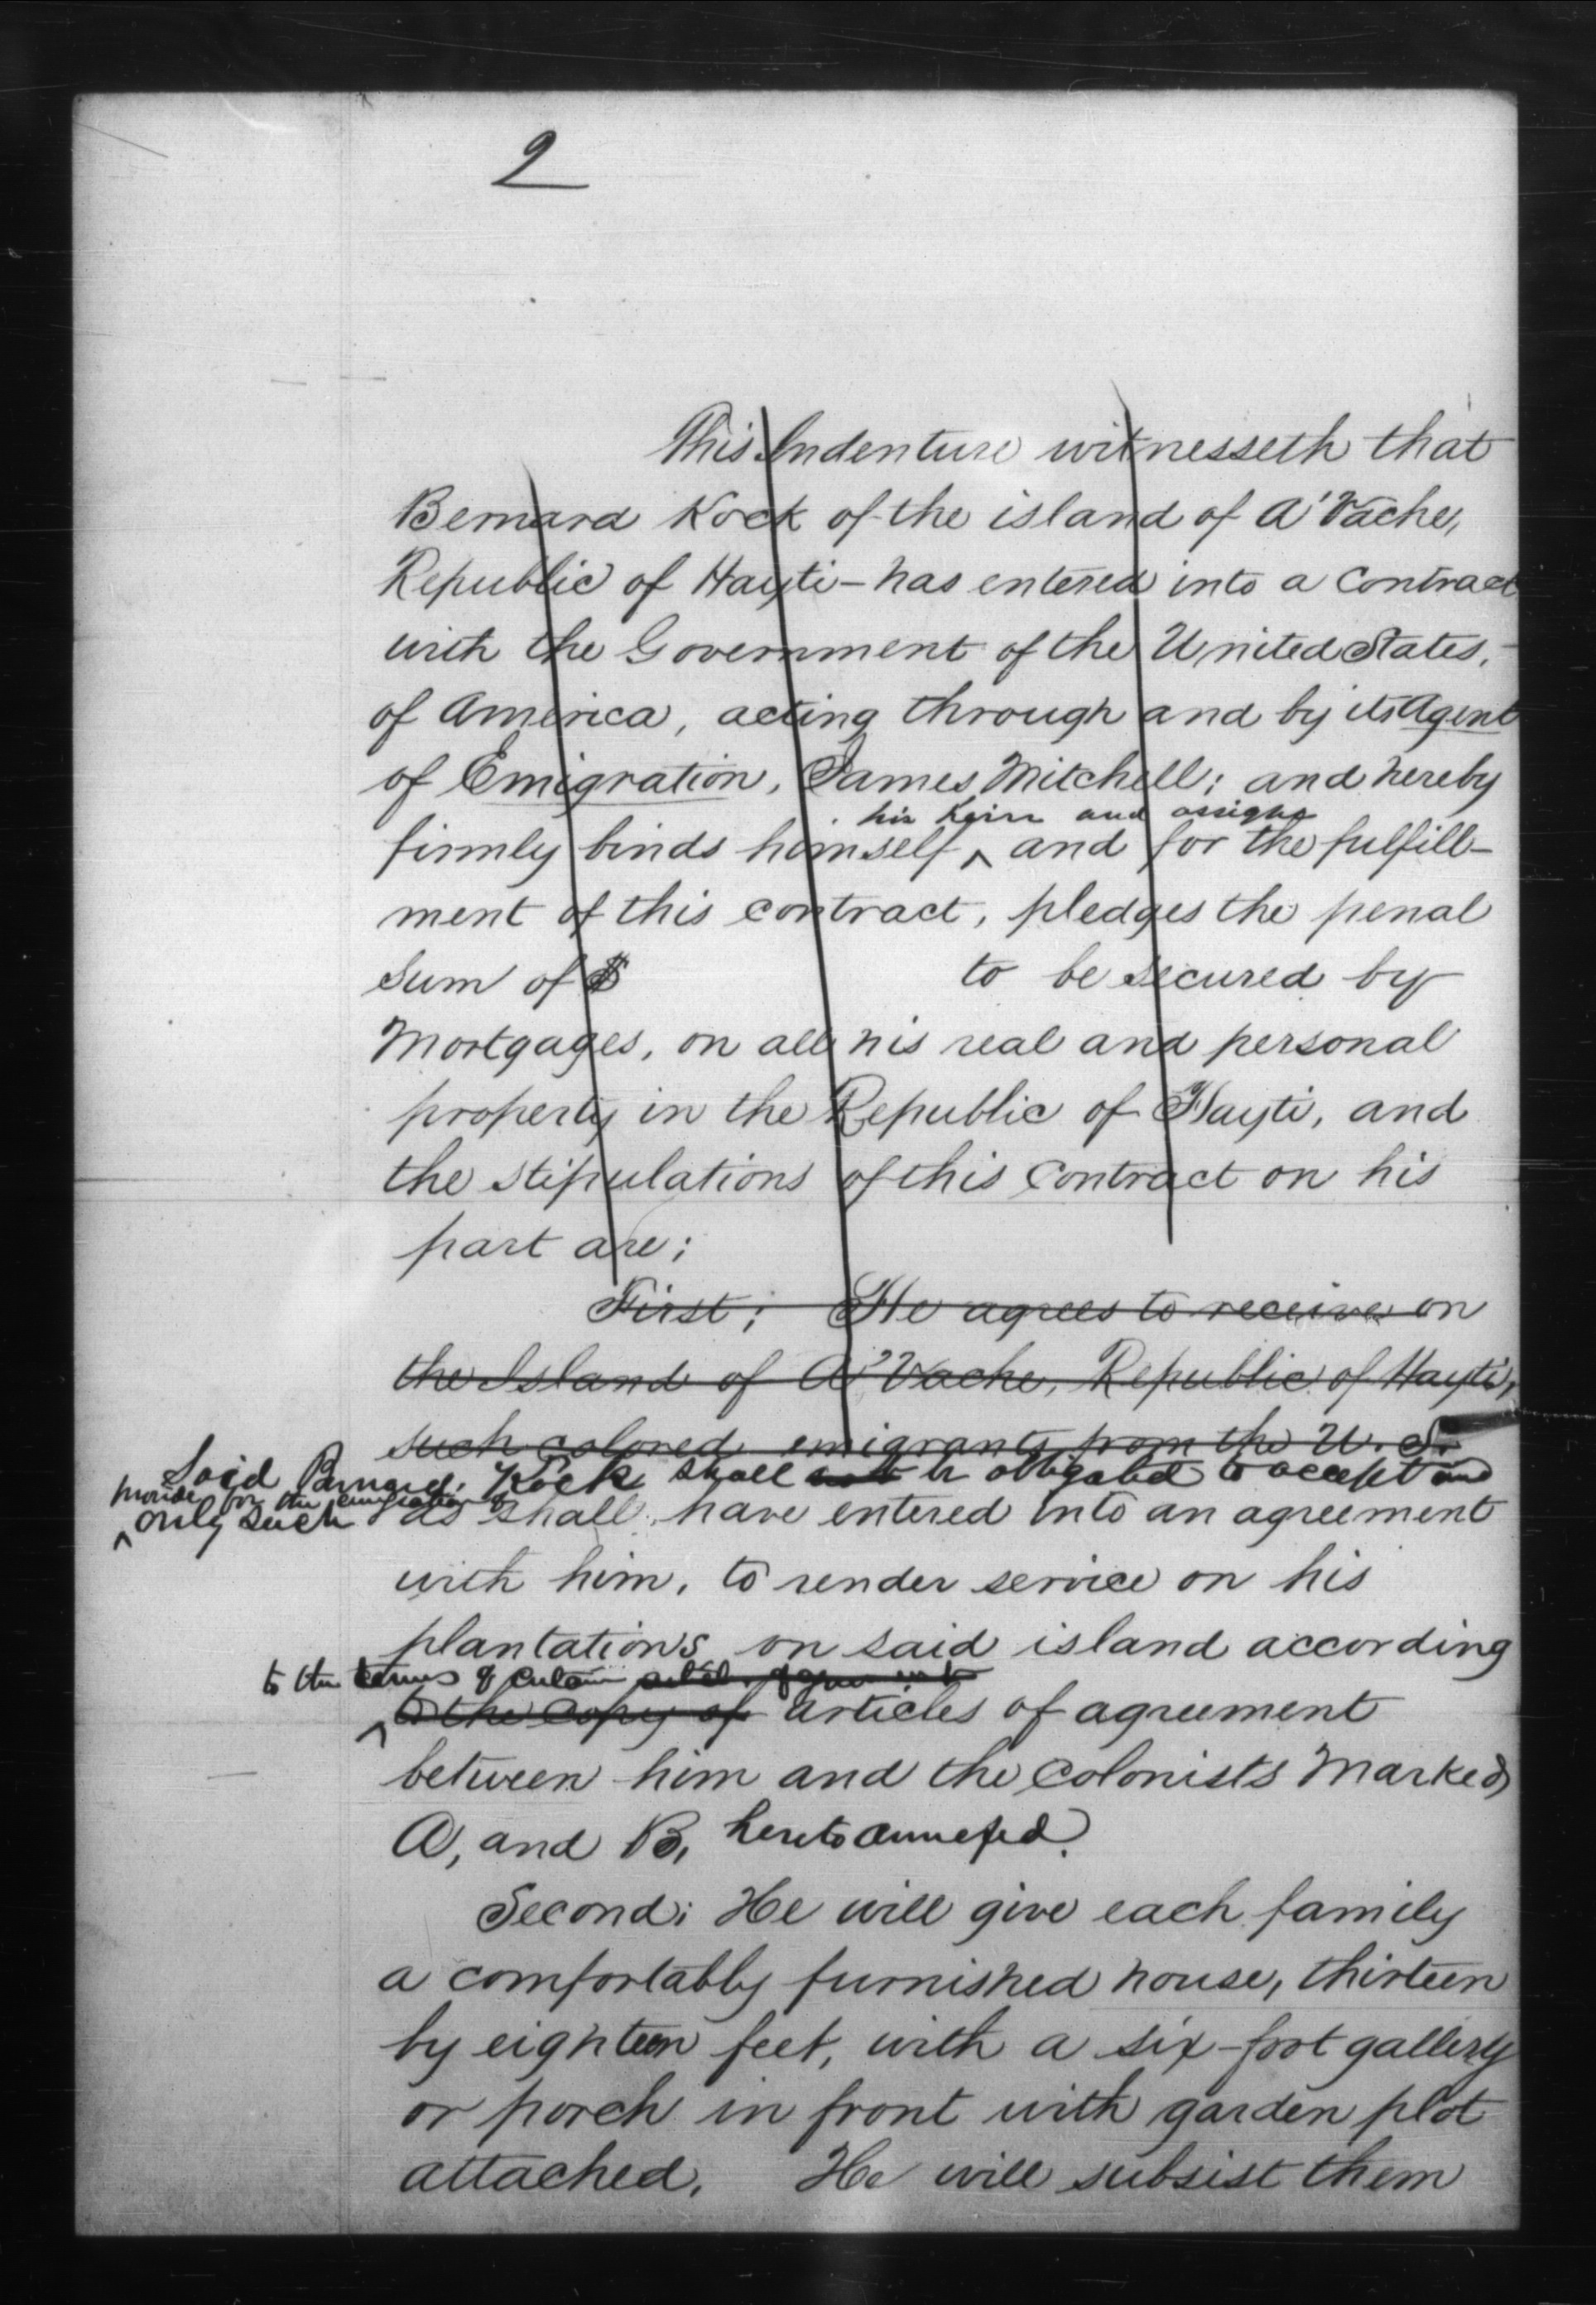 2
This Indenture witnesseth that
Bernard Kock of the island of A'Vache,
Republic of Hayti - has entered into a Contract
with the Government of the United States,
of America, acting through and by its Agent
of Emigration, James Mitchell; and hereby
his heirs and assigns
firmly binds himself ^ and for the fulfill-
ment of this contract, pledges the penal
Sum of $ to be secured by
Mortgages, on all his real and personal
property in the Republic of Hayti, and
the stipulations of this Contract on his
part are;
First; He agrees to receive on
the Island of A'Vache, Republic of Hayti,
such colored emigrants from the U. S.
Said Bernard Kock shall be obligated to accept and
provide for the emigration of
^ only such as shall have entered into an agreement
with him, to render service on his
plantations on said island according
to the terms of certain
^ to the copy of articles of agreement
between him and the Colonists Marked
A, and B, hereto annexed.
Second: He will give each family
a comfortably furnished house, thirteen
by eighteen feet, with a six-foot gallery
or porch in front with garden plot
attached. He will subsist them